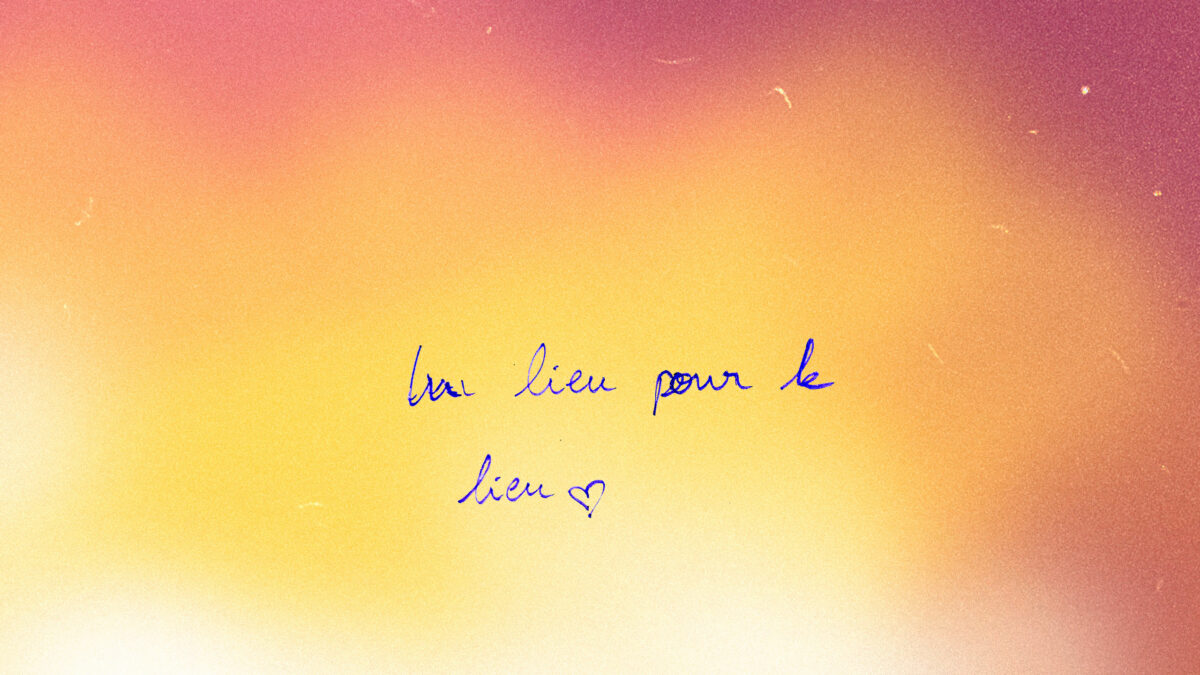 Un lieu pour le
lien ♡